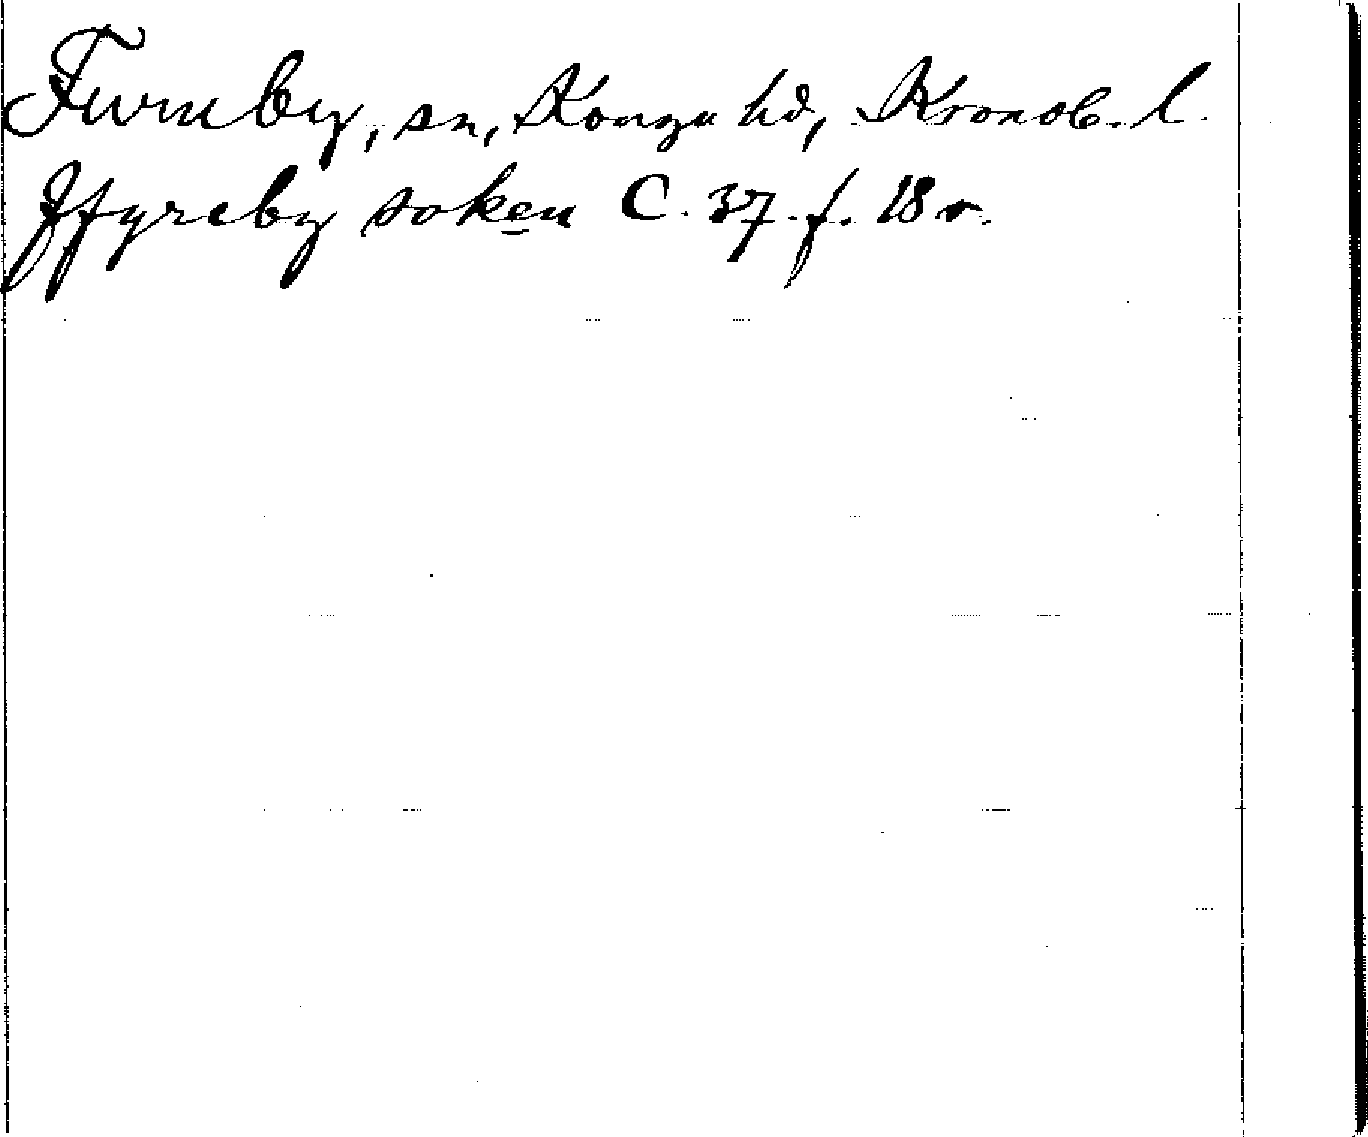 Furuby, sn, Konga hd, Kronob. l.
ffyreby soken C. 37. f. 18 r.